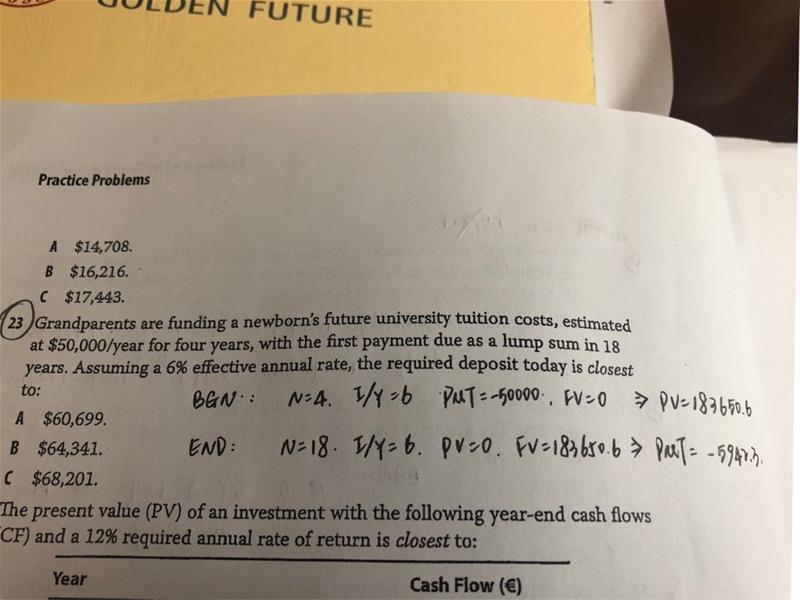 GOLDEN FUTURE
Practice Problems
A $14,708.
B $16,216.
C $17,443.
23 Grandparents are funding a newborn's future university tuition costs, estimated
at $50,000/year for four years, with the first payment due as a lump sum in 18
years. Assuming a 6% effective annual rate, the required deposit today is closest
to:
BGN: N=4. I/Y=6 PMT=-50000., FV=0 ⇒ PV=183650.6
A $60,699.
B $64,341.
END: N=18. I/Y=6. PV=0. FV=183650.6 ⇒ PMT=
C $68,201.
The present value (PV) of an investment with the following year-end cash flows
CF) and a 12% required annual rate of return is closest to:
Year Cash Flow (€)